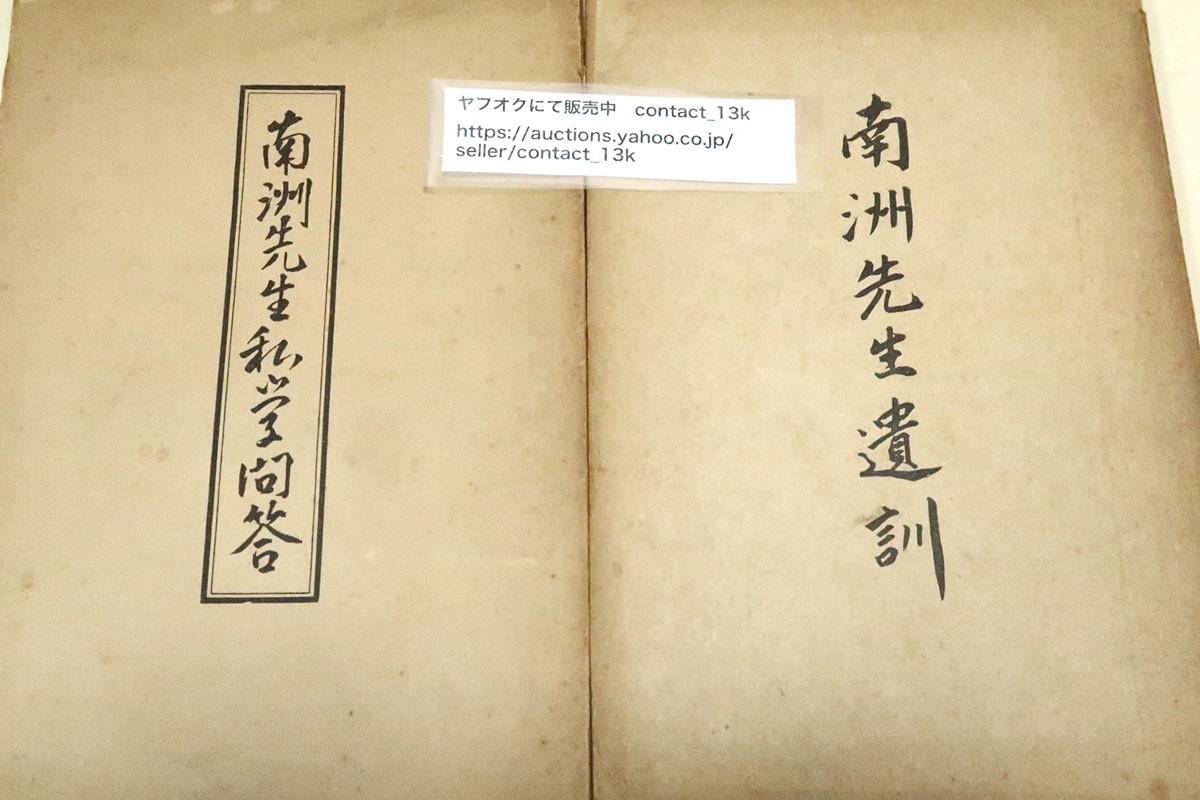 南洲先生遺訓
ヤフオクにて販売中 contact_13k
https://auctions.yahoo.co.jp/
seller/contact_13k
南洲先生私学問答